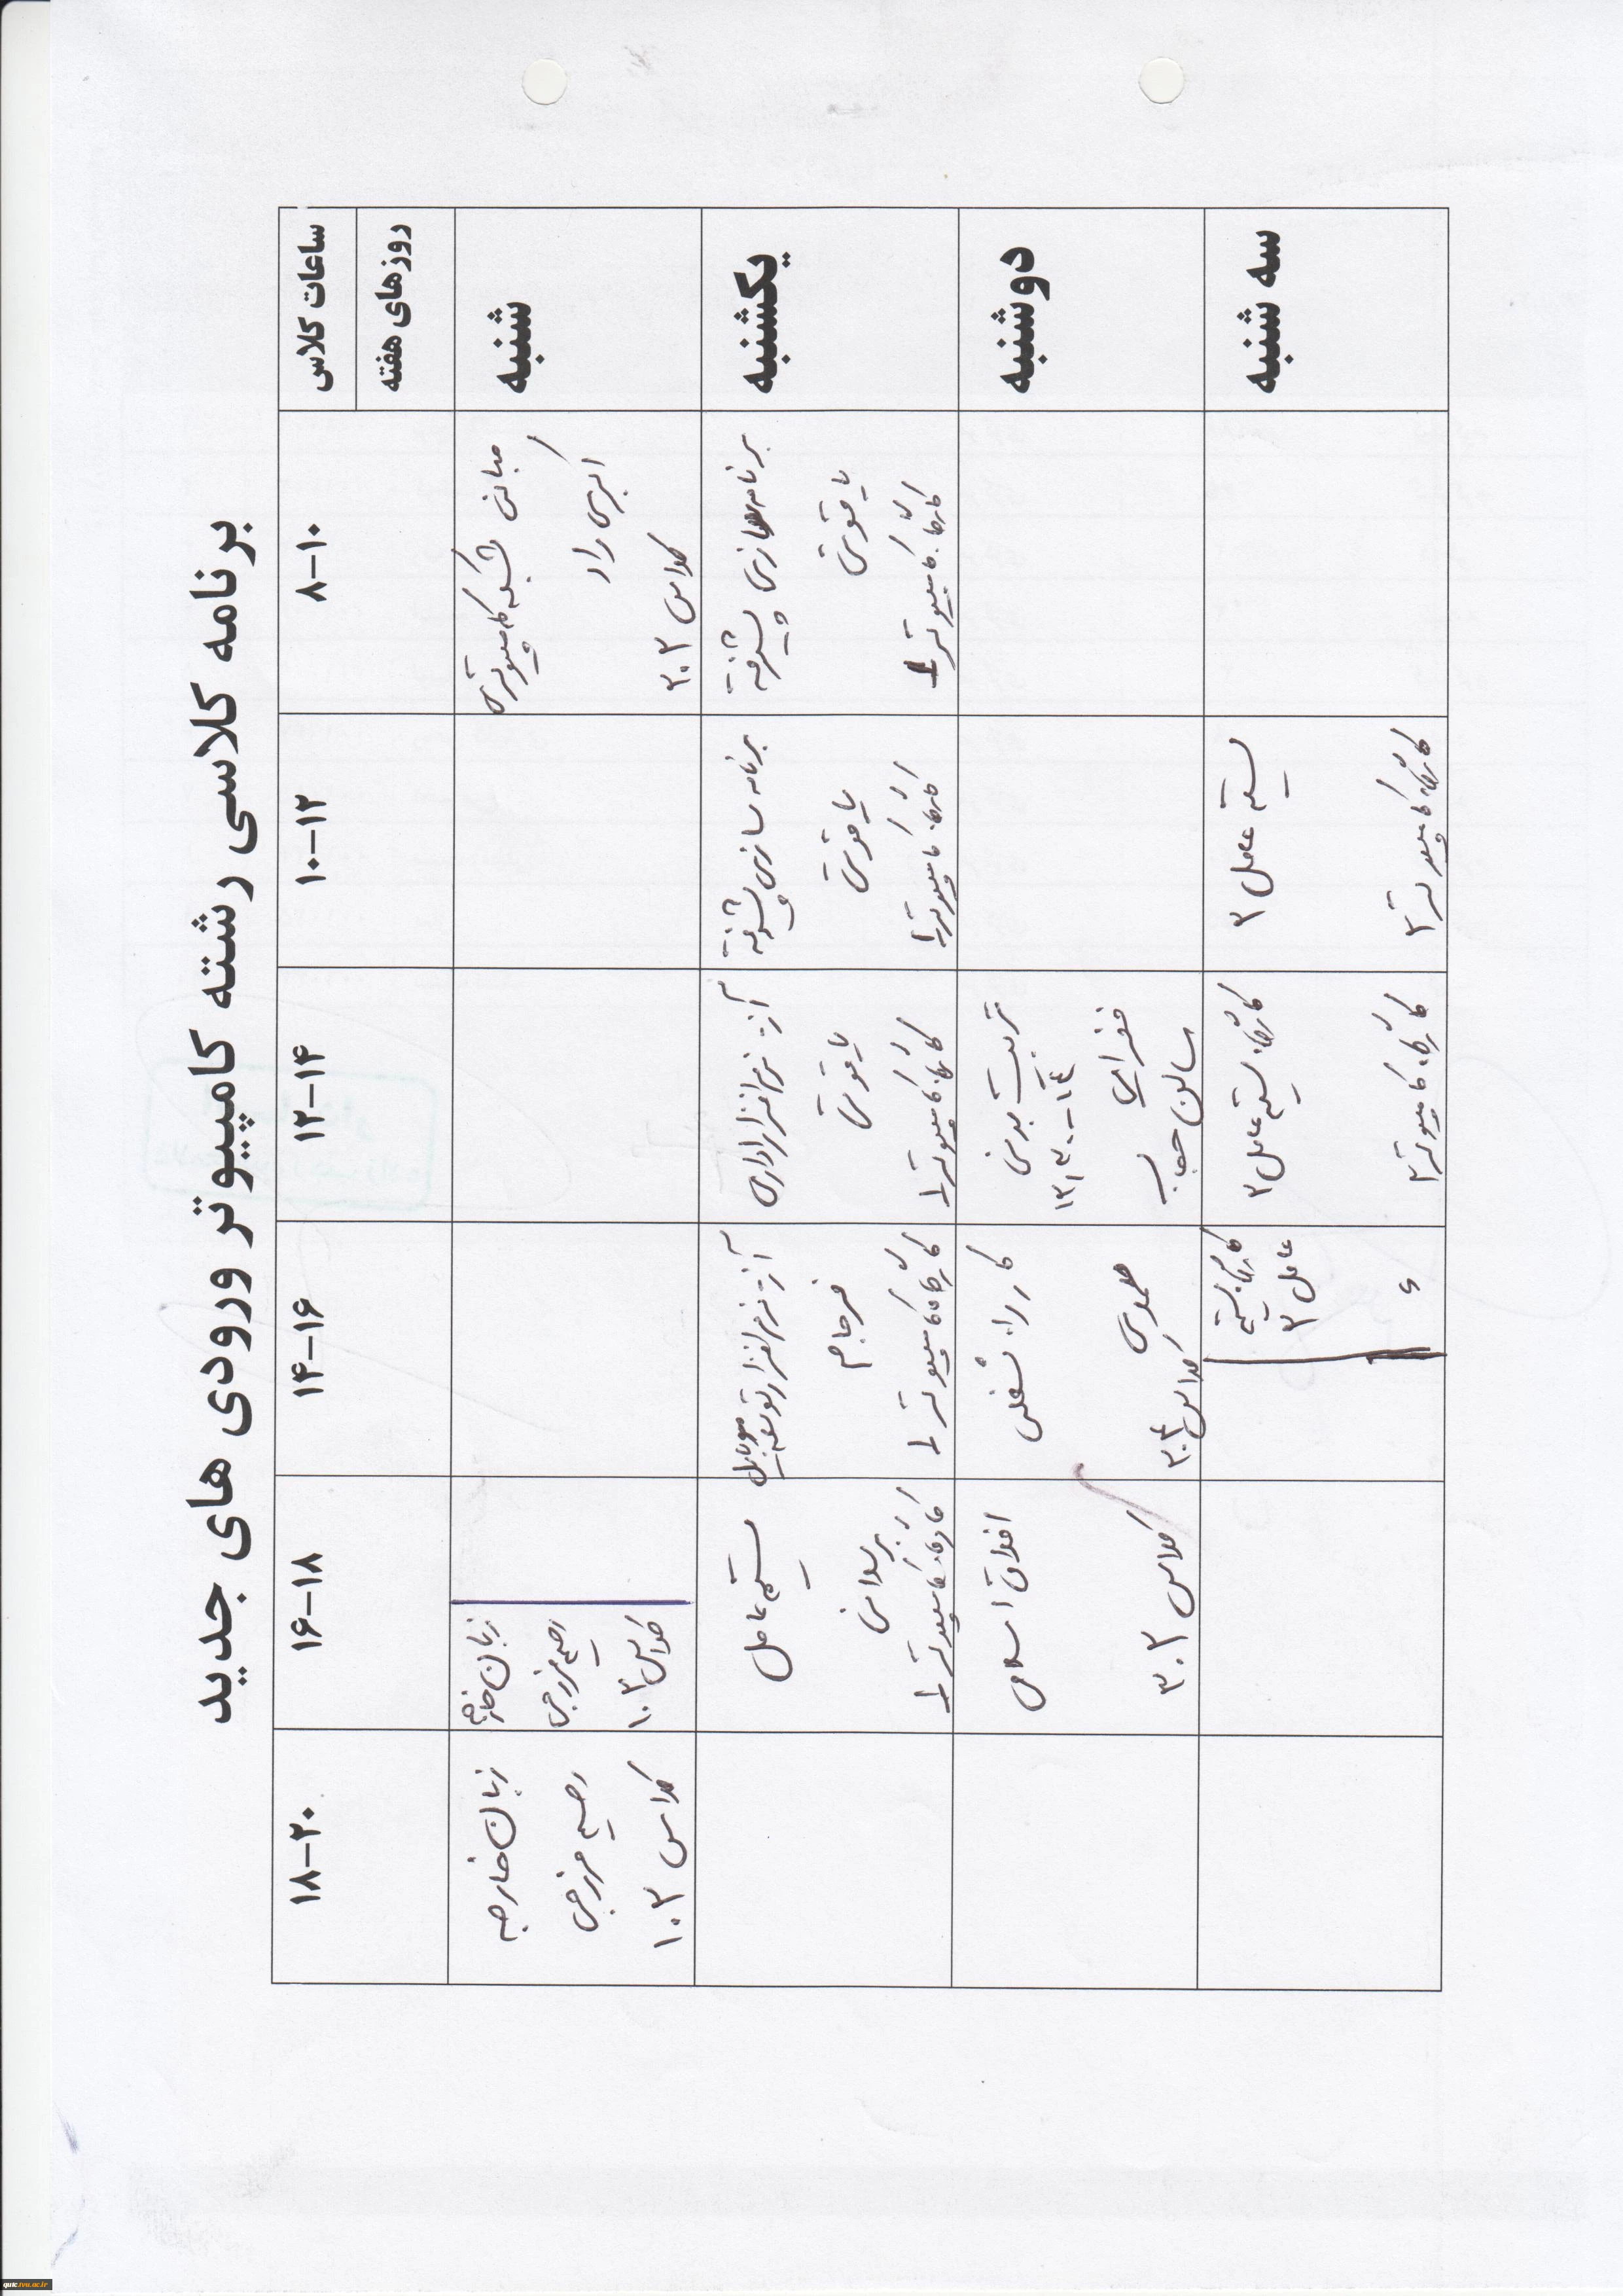 برنامه کلاسی رشته کامپیوتر ورودی های جدید
ساعات کلاس
روزهای هفته
۸-۱۰
۱۰-۱۲
۱۲-۱۴
۱۴-۱۶
۱۶-۱۸
۱۸-۲۰
شنبه
مبانی شبکه کامپیوتری
اکبری راد
کلاس ۳۰۲
زبان خارجه
رحیم فرجی
کلاس ۱۰۳
زبان خارجه
رحیم فرجی
کلاس ۱۰۳
یکشنبه
برنامه سازی پیشرفته
یاقوتی
کارگاه کامپیوتر ۱
برنامه سازی پیشرفته
یاقوتی
کارگاه کامپیوتر ۱
آز نرم افزار اداری
یاقوتی
کارگاه کامپیوتر ۱
آز نرم افزار توسعه موبایل
فرجام
کارگاه کامپیوتر ۱
سیستم عامل
کارگاه کامپیوتر ۱
دوشنبه
تربیت بدنی
۱۲/۳۰-۱۴
سالن حجاب
کار راه شغلی
صمدی
کلاس ۳۰۴
اخلاق اسلامی
کلاس ۳۰۲
سه شنبه
سیستم عامل ۲
کارگاه کامپیوتر ۲
کارگاه سیستم عامل ۲
کارگاه کامپیوتر ۲
کارگاه سیستم
عامل ۲